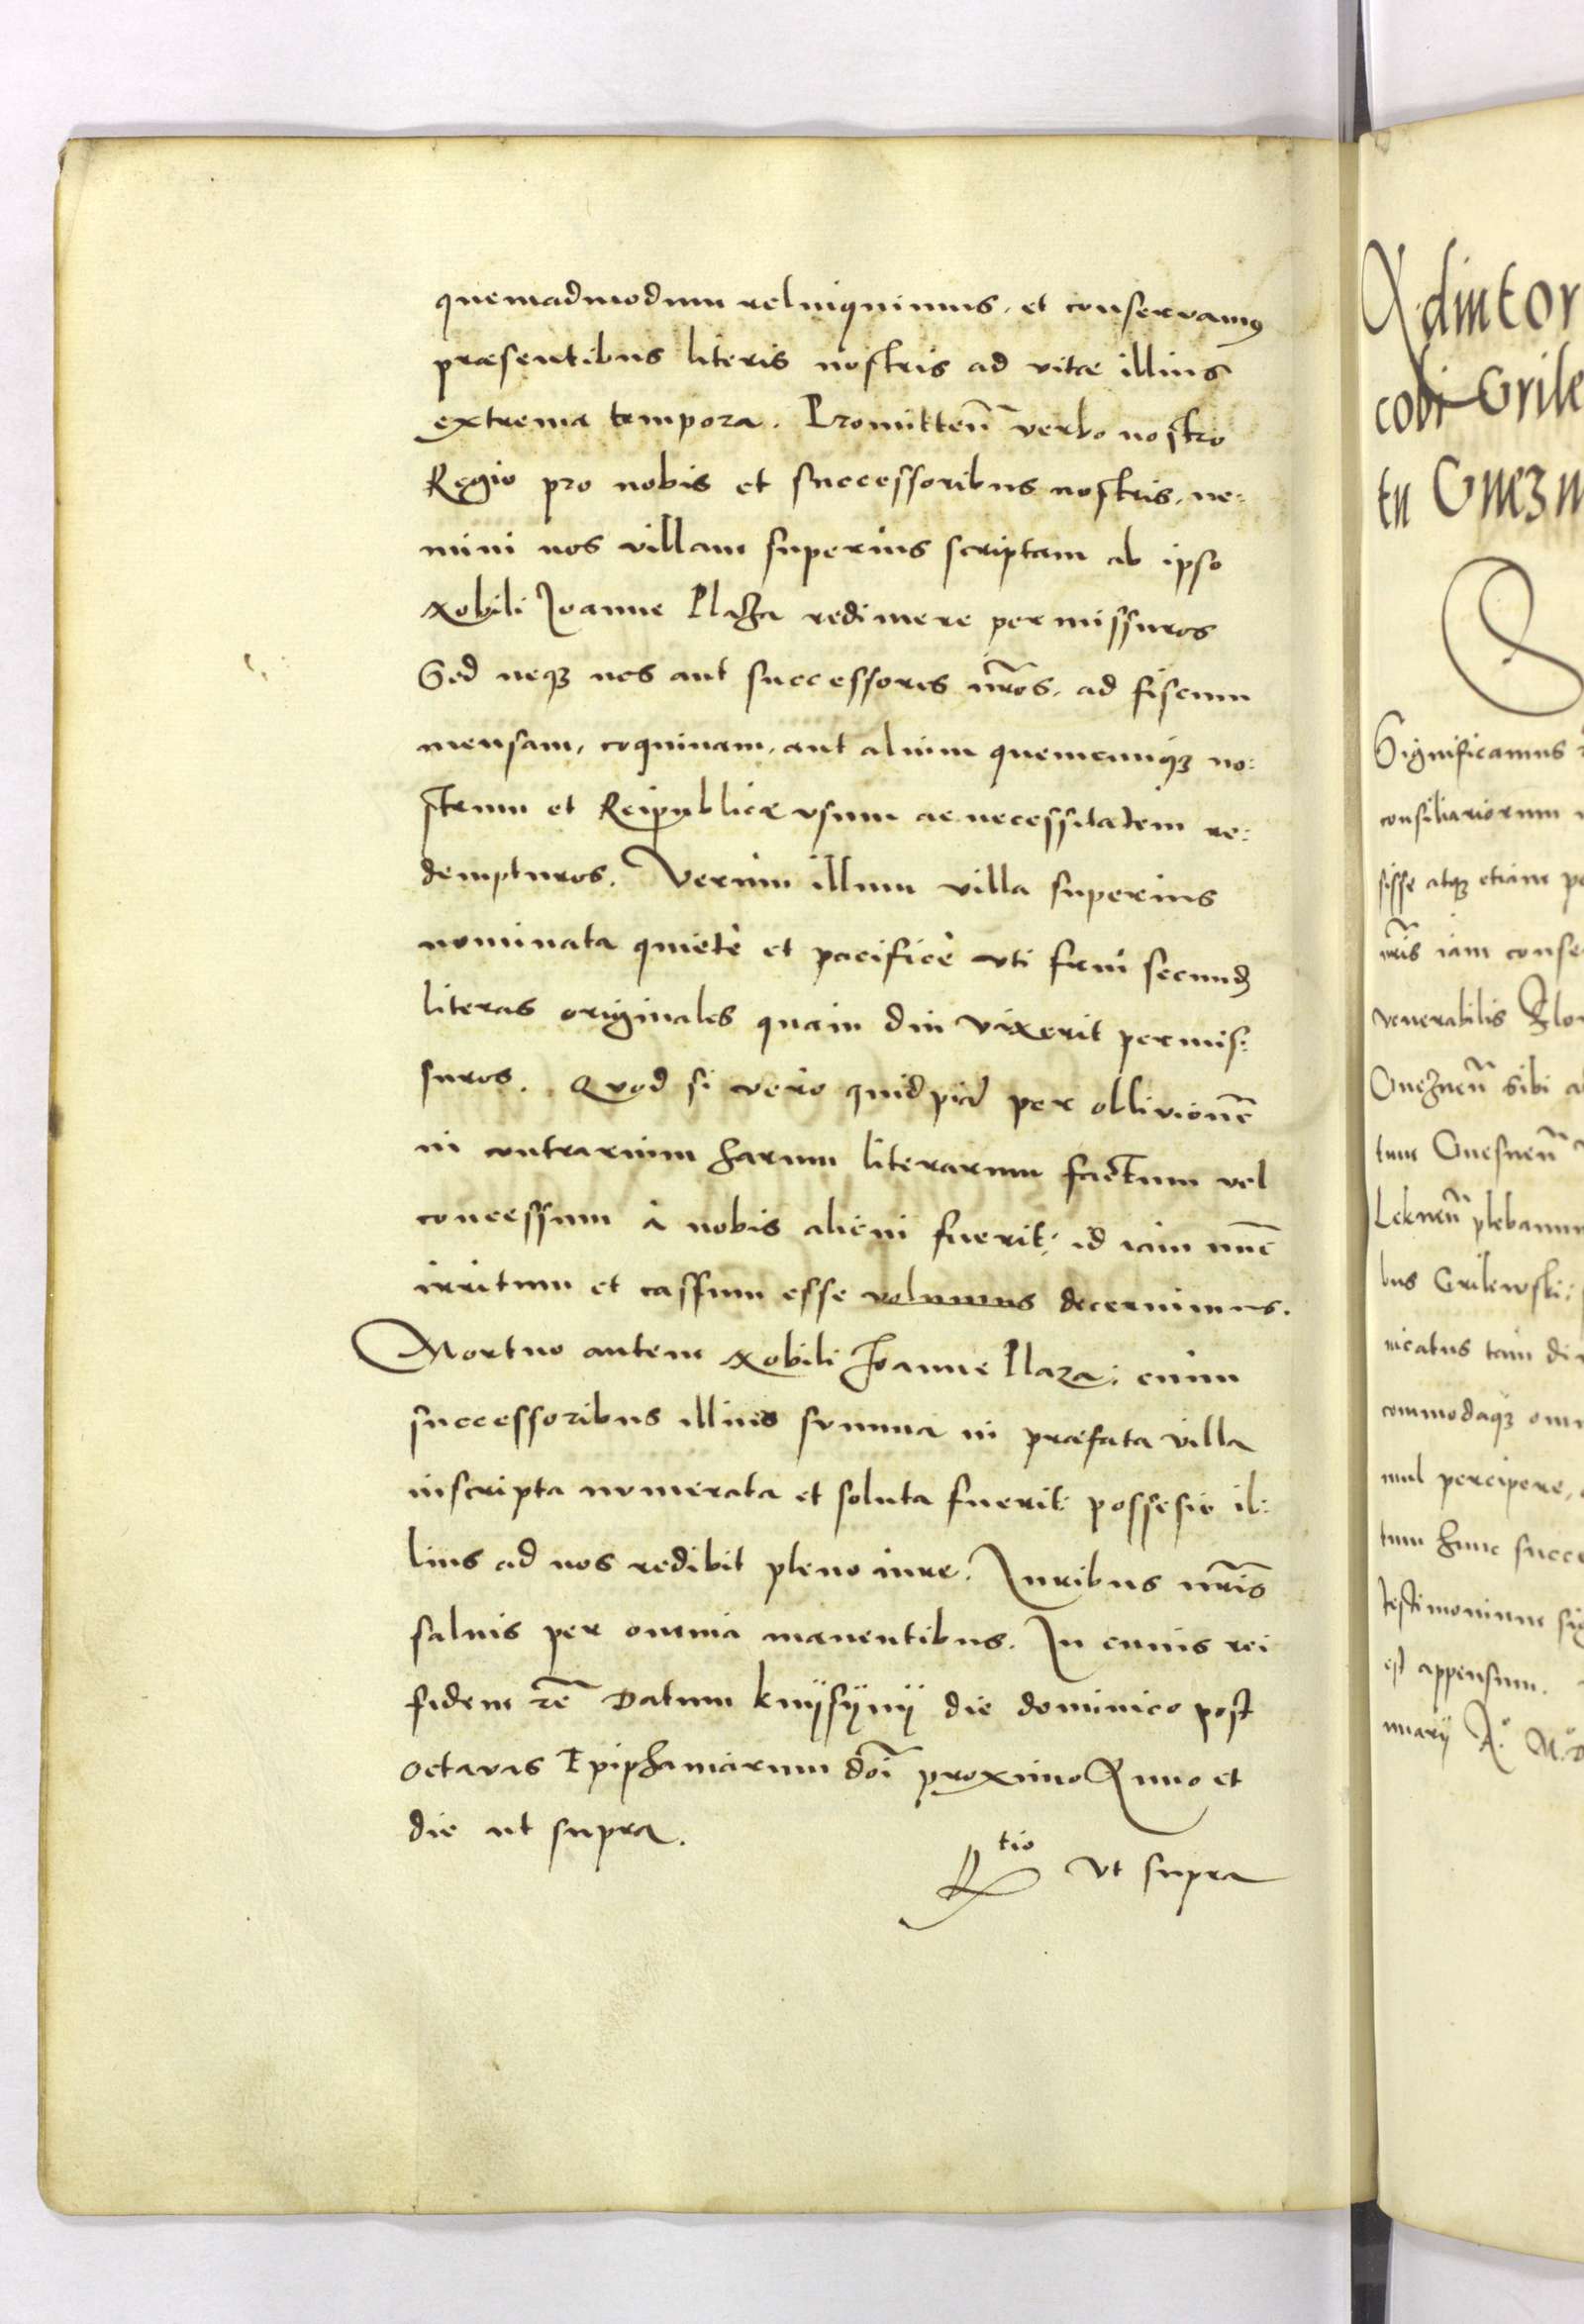 quemadmodum relinquimus, et conservamus
præsentibus literis nostris ad vitæ illius
extrema tempora. Promitten̄ verbo nostro
Regio pro nobis et successoribus nostris, ne:
mini nos villam superius scriptam ab ipso
Nobili Joanne Plaza redimere permissuros
Sed neqȝ nos aut successores nr̄os, ad fiscum
mensam, coquinam, aut alium quemcunqȝ no:
strum et Reipublicæ vsum ac necessitatem re:
dempturos. Verum illum villa superius
nominata quiete et pacifice vti frui secund
literas originales quam diu vixerit permis:
suros. Quod si vero quidpiā per oblivionē
in contrarium harum literarum factum vel
concessum à nobis alicui fuerit: id iam nūc
irritum et cassum esse volumus decernimus.
Mortuo autem Nobili Joanne Plaza: cum
successoribus illius summa in præfata villa
inscripta numerata et soluta fuerit: possesio il:
lius ad nos redibit pleno iure. Juribus nr̄is
salvis per omnia manentibus. In cuius rei
fidem rē Datum Knijsijnij die dominico post
octavas Epiphaniarum doī proximo Anno et
die ut supra.
Rtio Vt supra
Aditor
cobi Grile
tu Gnezn
S
Significamus
consiliariorum
sisse atqȝ etiam pe
nr̄is iam conse
venerabilis Flor
Gneznen̄ sibi a
tum Gnesnen̄
plebanum
bus Grilewski:
nicatus tam di
commodaqȝ omn
mul percipere,
tum hunc succe
testimonium sig
est appensum.
nuarij A.° M.D